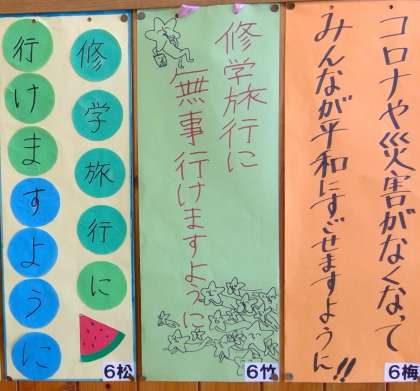 修学旅行に
行けますように
6松
修学旅行に
無事行けますように
6竹
コロナや災害がなくなって
みんなが平和にすごせますように!!
6梅